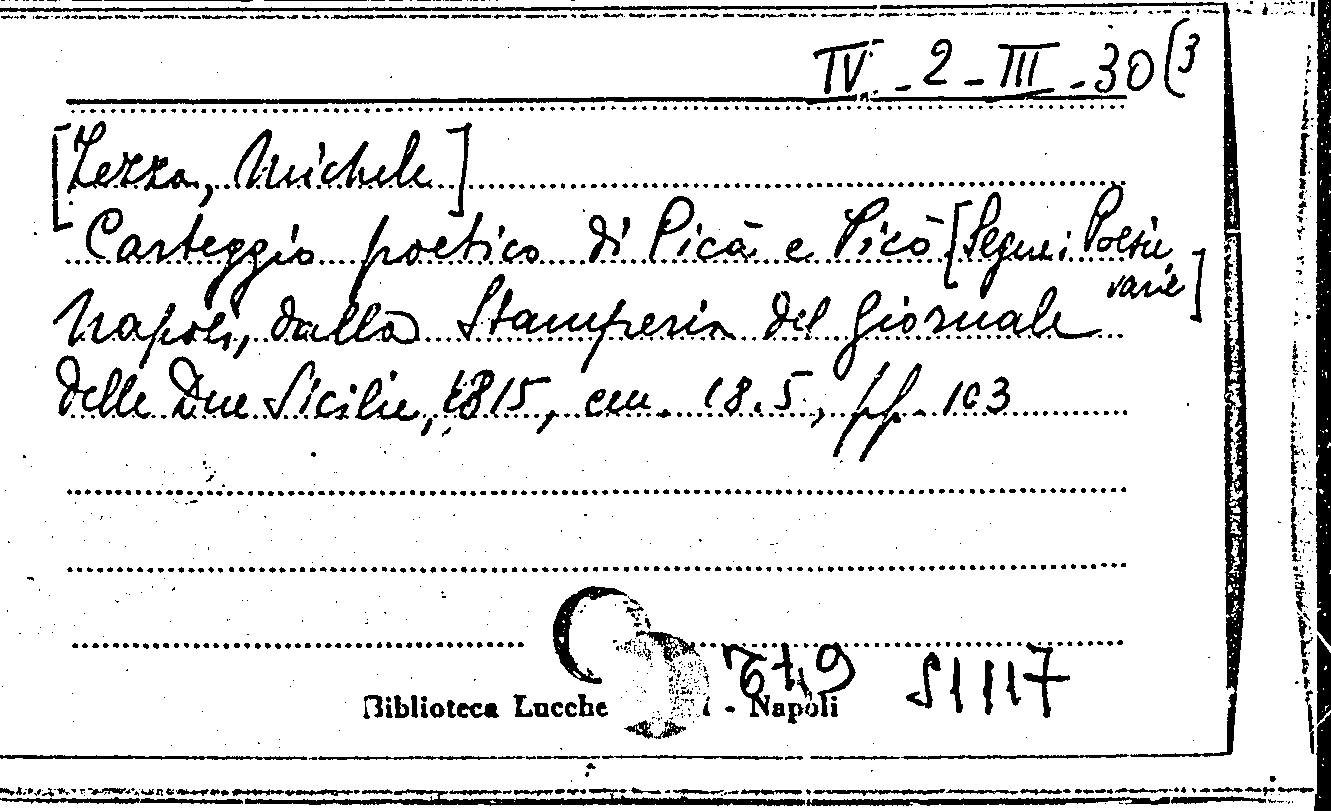 IV - 2 - III - 30(3
[Zezza, Michele]
Carteggio poetico di Picà e Picò [Segue: Poesie varie]
Napoli, dalla Stamperia del Giornale
delle Due Sicilie, 1815, cm. 18.5, pp. 103
Biblioteca Lucche i - Napoli
S1117